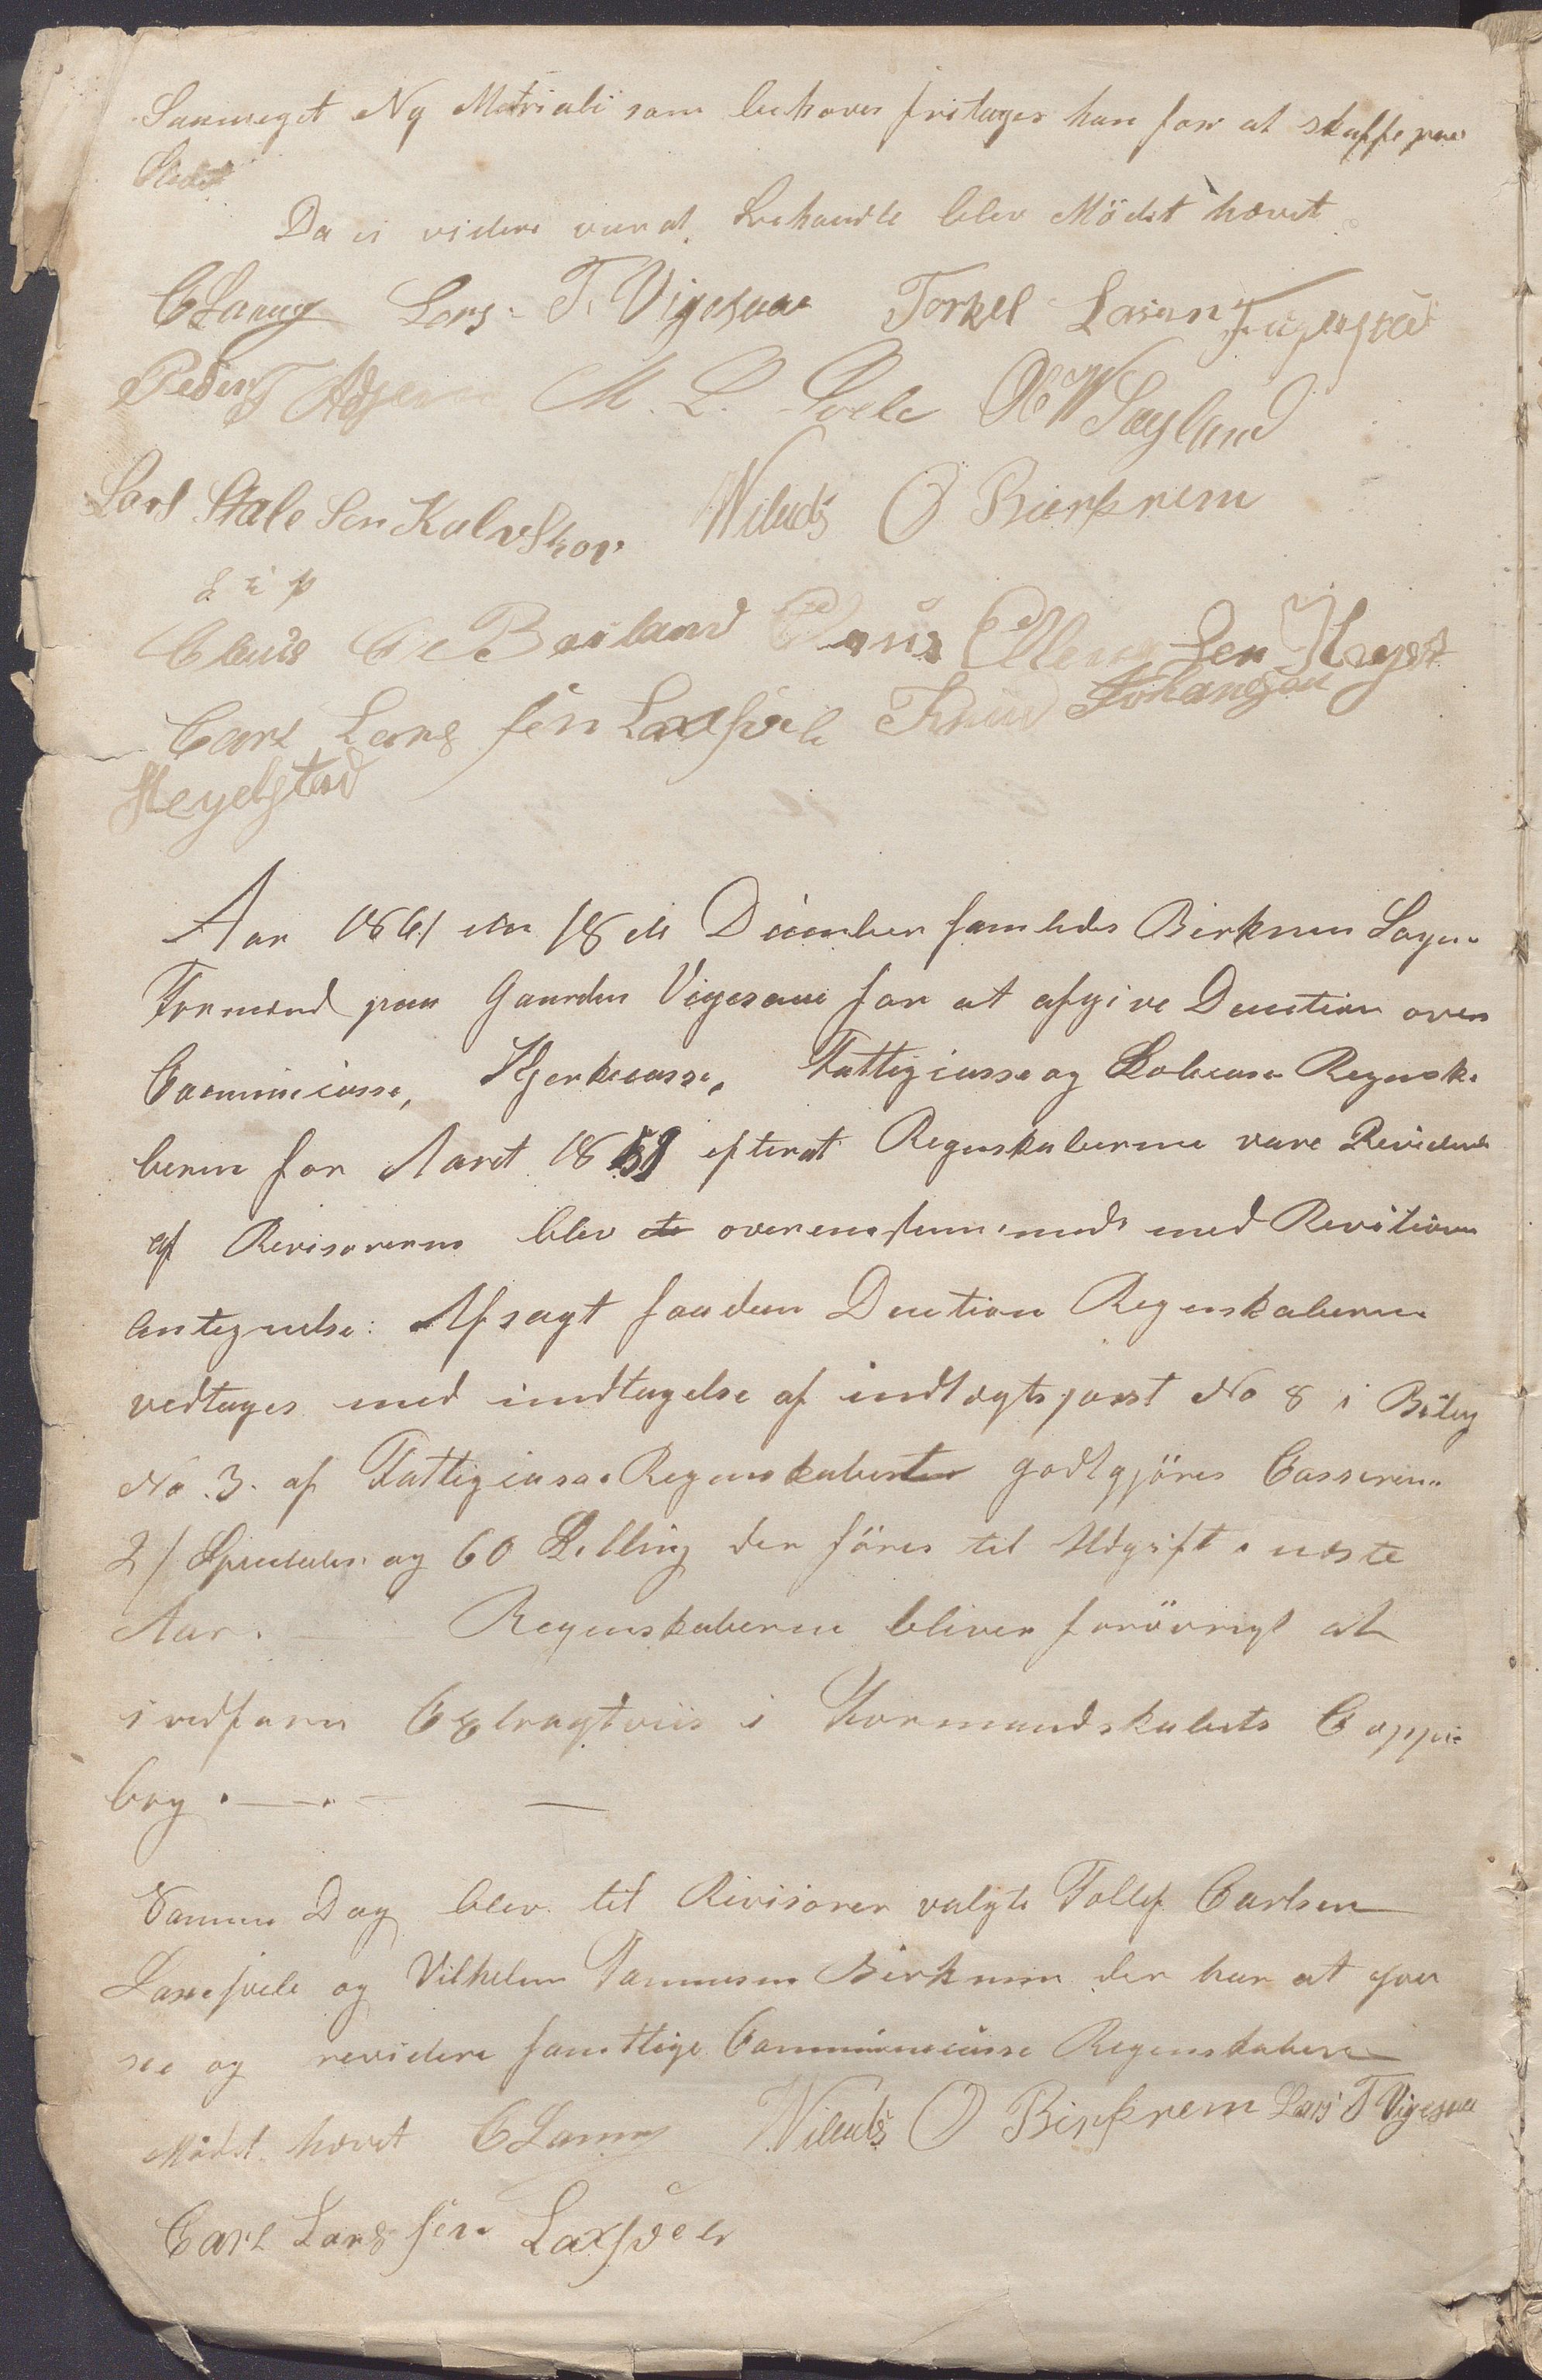 Saameget Ny Matriali som behøves fritages han for at skaffe paa
Stedet
Da ei videre var at behandle blev Mödet hævet
C Lauug Lars T. Vigesaae Torkel Lassen Fugelstad
Peder T M. L. Svele Ole W Søyland
Lars Staleson Kalvshov Wilads O Bierkrem
Claus C Bouland Jonas Ellingsen Hegest
Carl Larssen Laxsvele Knud Johansen
Hegelstad
Aar 1861 den 18de December samledes Birkrem Sogns
Formænd paa Gaarden Vigesaae for at afgive Decition over
Communicasse, Kjerkecasse, Fattigcasse og Skolecase Regnska
berne for Aaret 1861 efterat Regnskaberne vare Reviderede
af Revisorerne blev overensstemmende med Revisions
antegnelse: Afsagt saadan Decition Regnskaberne
vedtages med undtagelse af indtægtspost No 8 i Bilag
No. 3. af Fattigcasse Regnskabet godtgjöres Casseren
21 Speciedaler og 60 Skilling der föres til Udgift i næste
Aar. Regnskaberne bliver forövrigt at
indföre Extragtviis i Formandskabets Coppie
bog.
Samme Dag blev til Revisorer valgte Tollef Carlsen
Laxesvele og Vilhelm Tønnesen Birkrem der har at gjen
see og revidere samtlige Communecasse Regnskaber
Mödet hævet C Lauug Wilads O Birkrem Lars T Vigesaa
Carl Larssen Laxsvele